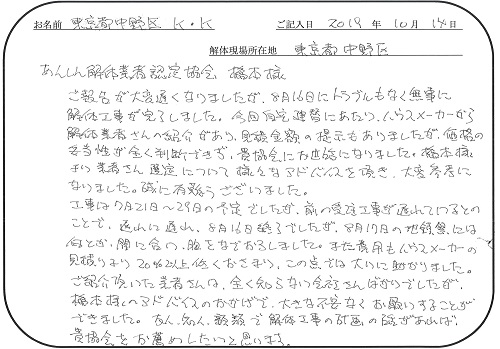 お名前 東京都中野区 K・K ご記入日 2019年10月15日
解体現場所在地 東京都中野区
あんしん解体業者認定協会 橋本様
ご報告が大変遅くなりましたが、8月16日にトラブルもなく無事に
解体工事が完了しました。今回自宅建替にあたり、ハウスメーカーから
解体業者さんの紹介があり、見積金額の提示もありましたが、価格の
妥当性が全く判断できず、貴協会にお世話になりました。橋本様
より業者さん選定について様々なアドバイスを頂き、大変参考に
なりました。誠に有難うございました。
工事は7月21日〜29日の予定でしたが、前の受注工事が遅れているとの
ことで、遅れに遅れ、8月16日終了でしたが、8月17日の地鎮祭には
何とか、間に合い、胸をなでおろしました。また費用もハウスメーカーの
見積りより20%以上低くおさまり、この点では大いに助かりました。
ご紹介頂いた業者さんは、全く知らない会社さんばかりでしたが、
橋本様のアドバイスのおかげで、大きな不安なくお願いすることが
できました。友人、知人、親類で解体工事の計画の際があれば、
貴協会をお薦めしたいと思います。